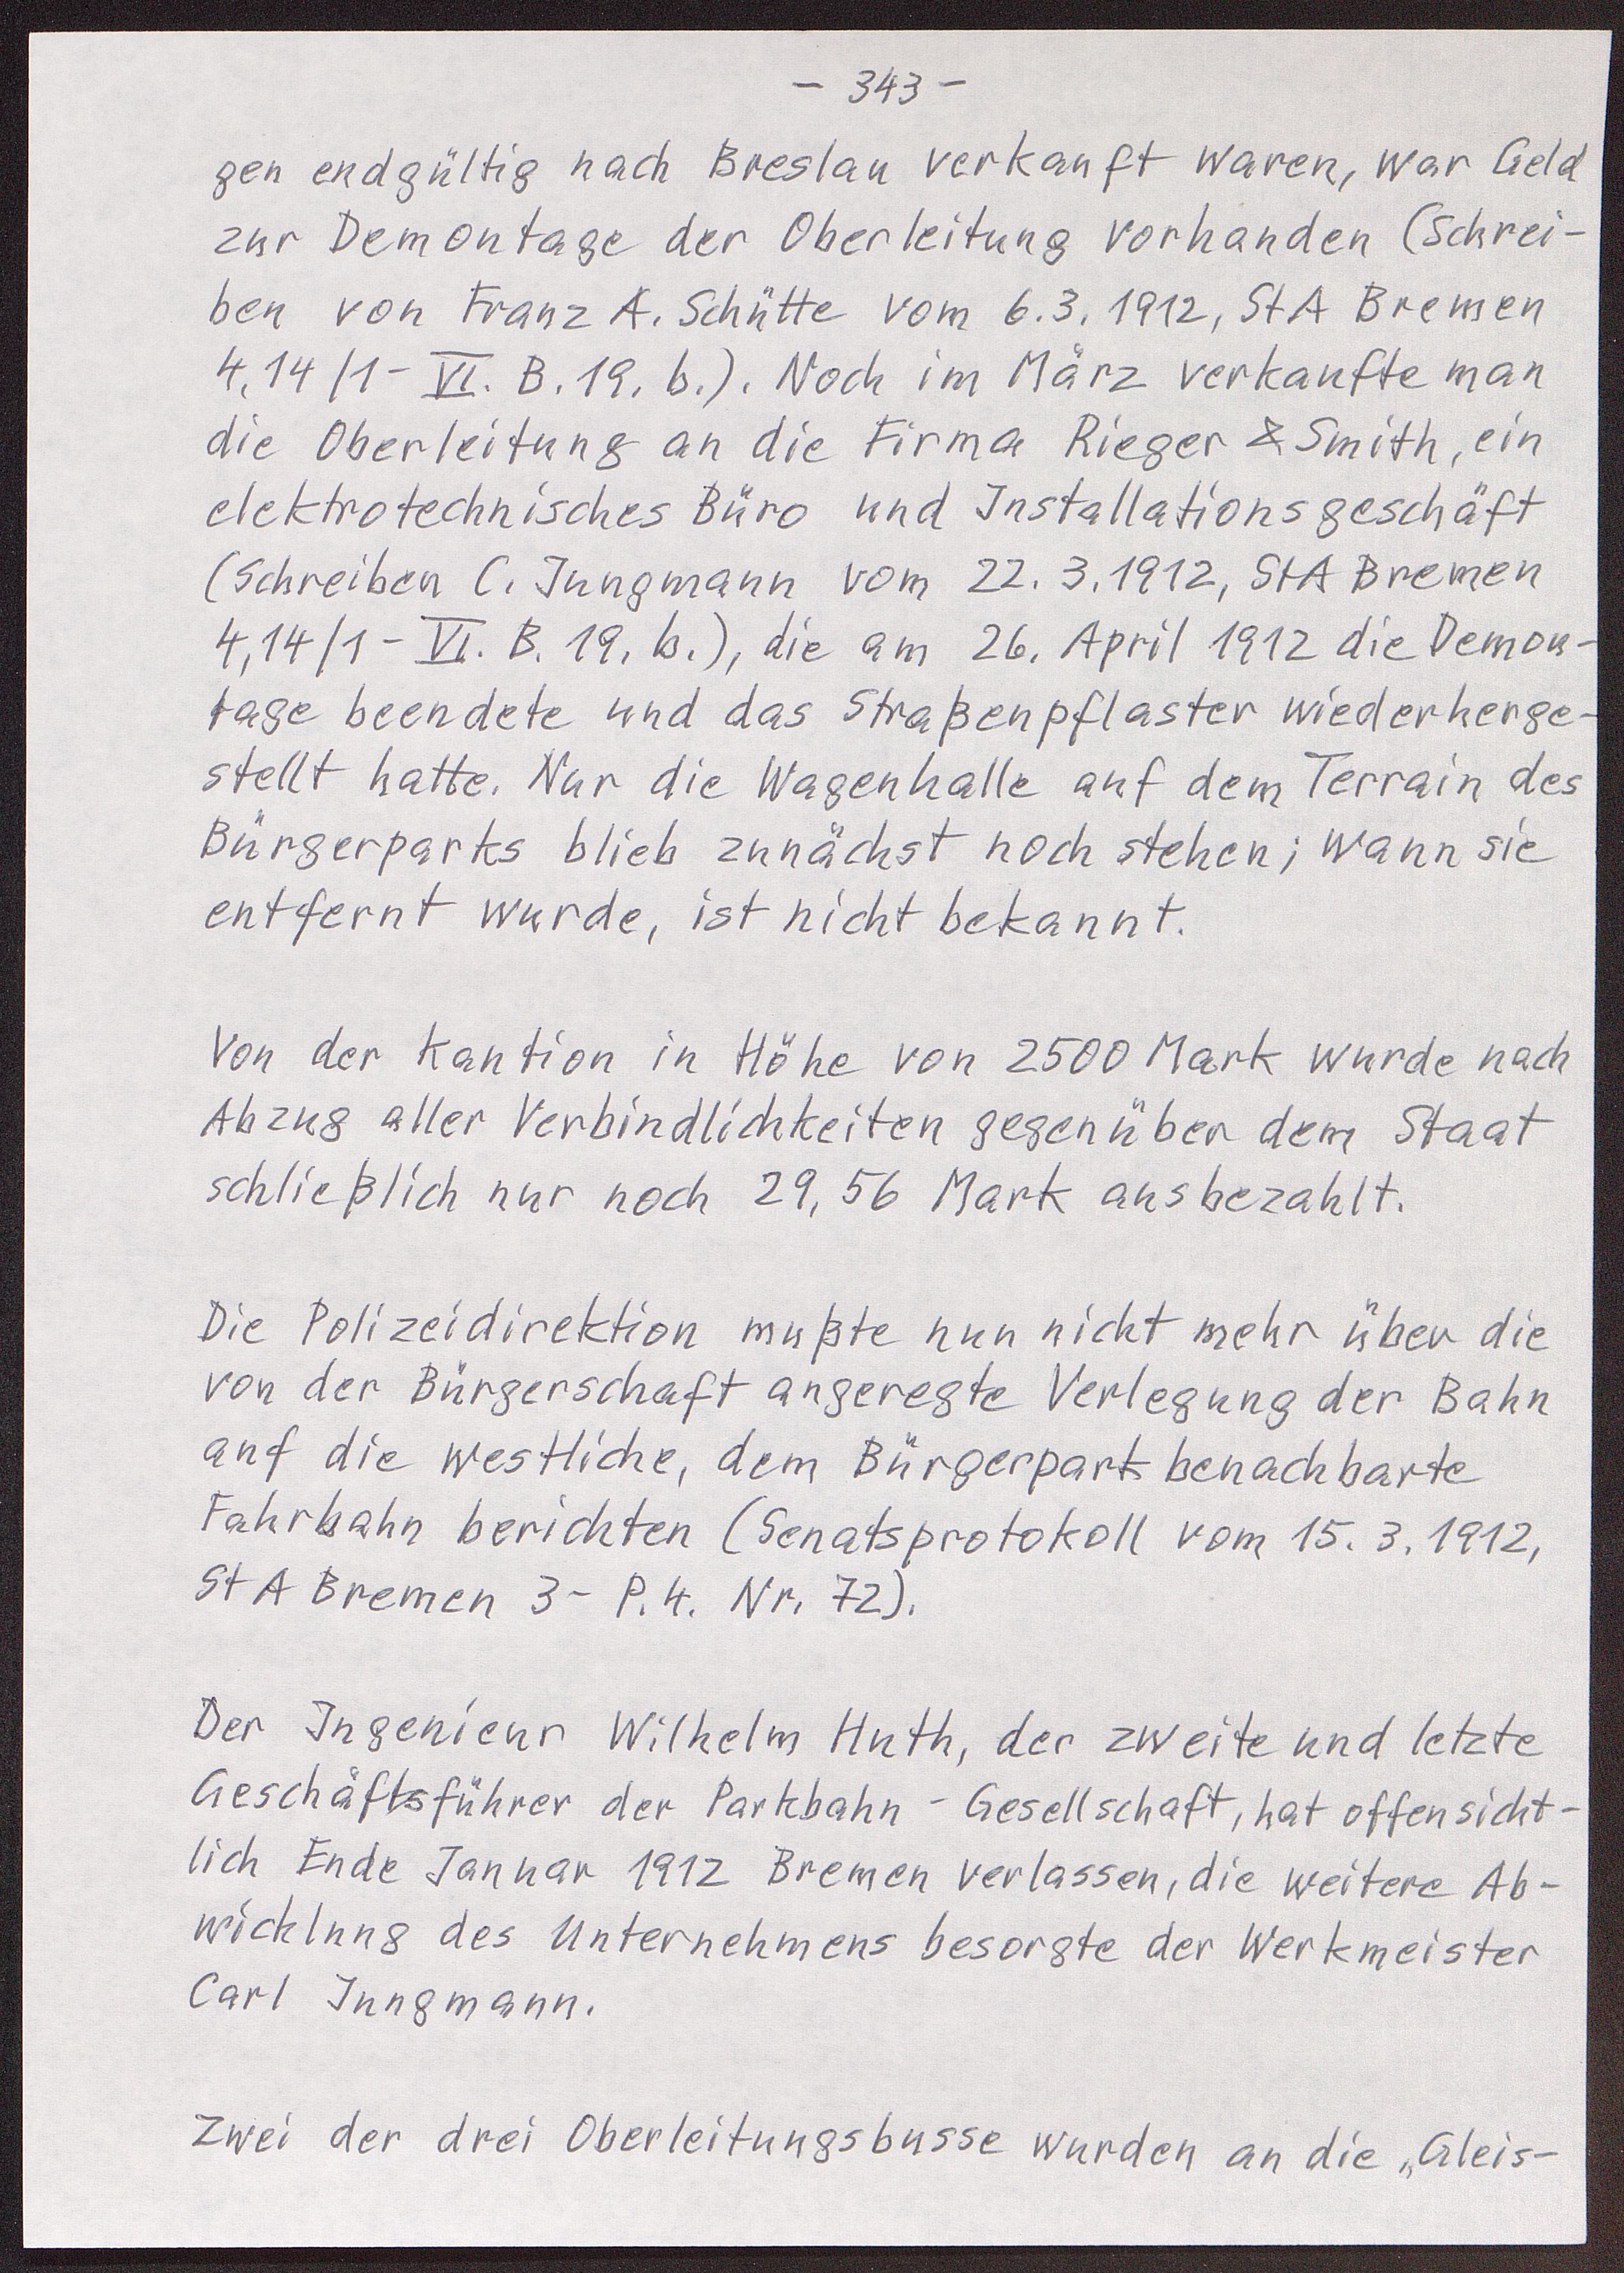 - 343 -
gen endgültig nach Breslau verkauft waren, war Geld
zur Demontage der Oberleitung vorhanden (Schrei-
ben von Franz A. Schütte vom 6.3.1912, StA Bremen
4,14/1-VI. B.19.b.). Noch im März verkaufte man
die Oberleitung an die Firma Rieger & Smith, ein
elektrotechnisches Büro und Installationsgeschäft
(Schreiben C. Jungmann vom 22.3.1912, StA Bremen
4,14/1-VI. B.19.b.), die am 26. April 1912 die Demon-
tage beendete und das Straßenpflaster wiederherge-
stellt hatte. Nur die Wagenhalle auf dem Terrain des
Bürgerparks blieb zunächst noch stehen; wann sie
entfernt wurde, ist nicht bekannt.
Von der Kaution in Höhe von 2500 Mark wurde nach
Abzug aller Verbindlichkeiten gegenüber dem Staat
schließlich nur noch 29,56 Mark ausbezahlt.
Die Polizeidirektion mußte nun nicht mehr über die
von der Bürgerschaft angeregte Verlegung der Bahn
auf die westliche, dem Bürgerpark benachbarte
Fahrbahn berichten (Senatsprotokoll vom 15.3.1912,
StA Bremen 3-P.4. Nr. 72).
Der Ingenieur Wilhelm Huth, der zweite und letzte
Geschäftsführer der Parkbahn-Gesellschaft, hat offensicht-
lich Ende Januar 1912 Bremen verlassen, die weitere Ab-
wicklung des Unternehmens besorgte der Werkmeister
Carl Jungmann.
Zwei der drei Oberleitungsbusse wurden an die „Gleis-